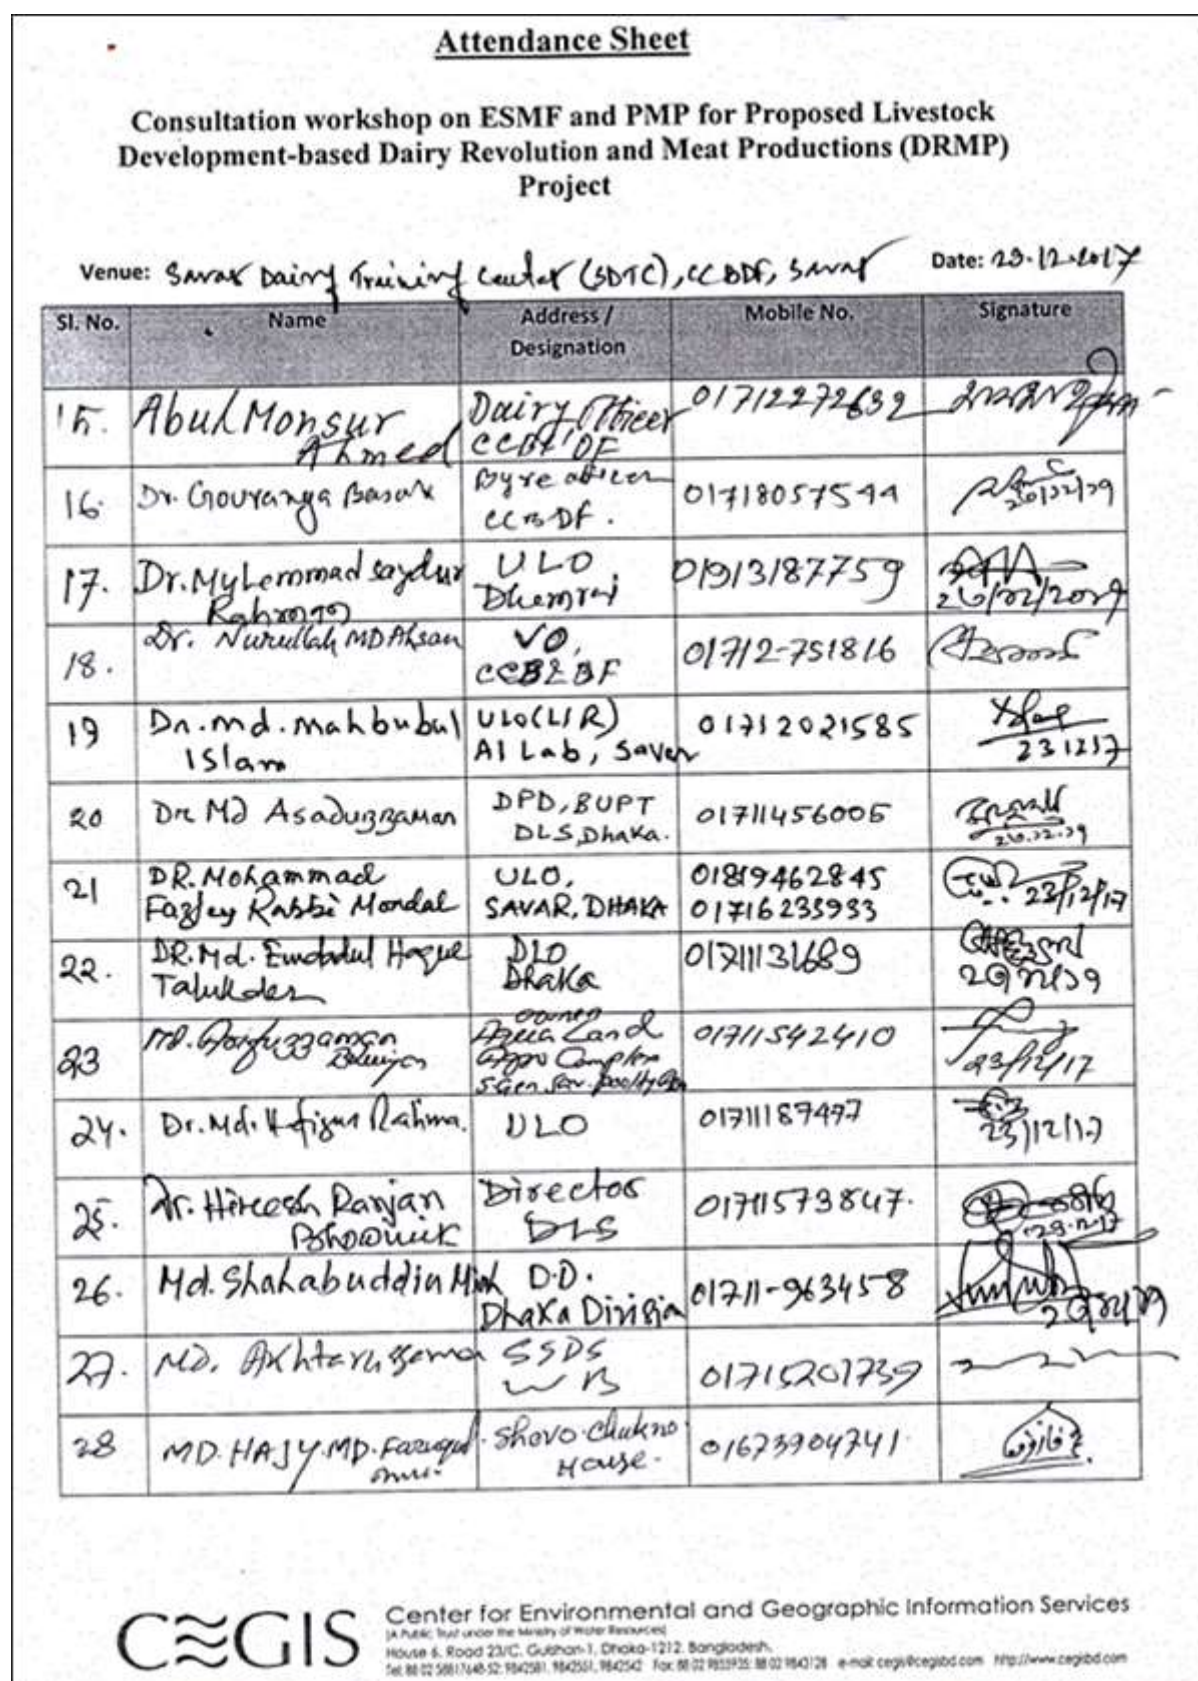 Attendance Sheet
Consultation workshop on ESMF and PMP for Proposed Livestock
Development-based Dairy Revolution and Meat Productions (DRMP)
Project
Venue: Savar Dairy Training Center (SDTC), CCBDF, Savar Date: 23-12-2017
Sl. No. Name Address / Designation Mobile No. Signature
15. Abul Monsur Ahmed Dairy Officer 01712272632
16. Dr. Gouranga Basak officer CCBDF. 01718057544 ২৩/১২/১৭
17. Dr. saydur Rahman ULO Dhamrai 01913187759 ২৩/১২/২০১৭
18. Dr. Nurullah MD Ahsan VO, 01712-751816
19 Dr. Md. Mahbubul Islam ULO(LIR) AI Lab, Saver 01712021585 231217
20 Dr Md Asaduzzaman DPD, BUPT DLS, Dhaka. 01711456005 ২৩.১২.১৭
21 DR. Mohammad Rabbi Mondal ULO, SAVAR, DHAKA 01819462845 01716233933 23/12/17
22. DR. Md. Haque Talukder DLO Dhaka 01711131689
23 Md. Land Complex 01711542410 23/12/17
24. Dr. Md. ULO 01711187497 23/12/17
25. Dr. Hireesh Ranjan Bhowmik Director DLS 01711573847. 23.12.17
26. Md. Shahabuddin Miah D.D. Dhaka Division 01711-963458
27. MD. SSDS WB 01715201739
28 MD. HAJY. MD. House. 01673904741
CEGIS
Center for Environmental and Geographic Information Services
(A Public Trust under the Ministry of Water Resources)
House 6, Road 23/C, Gulshan-1, Dhaka-1212, Bangladesh.
Tel: 88 02 58817648-52; 9842581, 9842551, 9842542 Fax: 88 02 9855935; 88 02 9843128 e-mail: cegis@cegisbd.com http://www.cegisbd.com